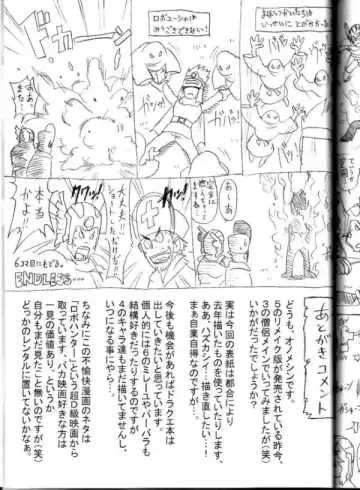 まほうつかいたちは
いっせいに とびかかった!
ロボューシャは
みうごきできない!
ガバッ!
ドカーン!
ああっ
また…
あ〜あ
完全に
燃えちゃってるよ
大丈夫!!
クワッ!
本当
かよ…
6コマ目にもどる。
ENDLESS…
あとがきコメント
どうも、オノメシンです。
5のリメイク版が発売されている昨今、
3の僧侶メインでいってみましたが(笑)
いかがだったでしょうか?
実は今回の表紙は都合により
去年描いたものを使っていたりします、
ああ、ハズカシイ…描き直したい…!
まぁ自業自得なのですが…。
今後も機会があればドラクエ本は
出していきたいと思っています。
個人的には6のミレーユやバーバラも
結構好きだったりするのですが
4のキャラ達もまだ描いてませんし、
いつになる事にやら…。
ちなみにこの不愉快漫画のネタは
「ロボハンター」という超D級映画から
取っています、バカ映画好きな方は
一見の価値あり、というか
自分もまだ見たこと無いのですが(笑)
どっかのレンタルに置いてないかなぁ。